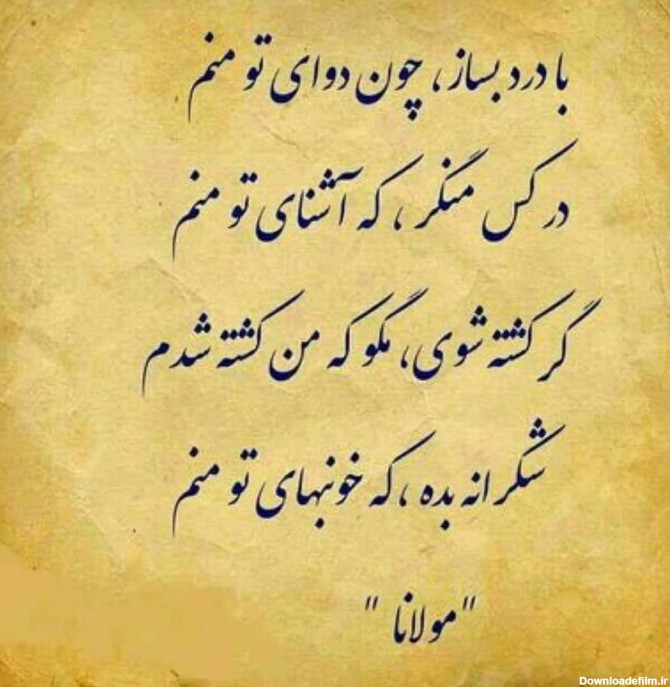 با درد بساز، چون دوای تو منم
در کس منگر، که آشنای تو منم
گر کشته شوی، مگو که من کشته شدم
شکرانه بده، که خونبهای تو منم
"مولانا"
Downloadefilm.ir